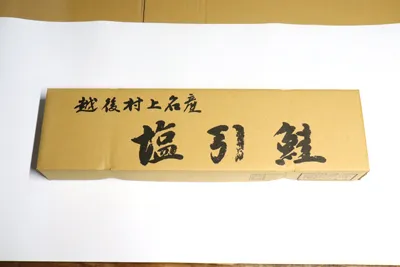 越後村上名産
塩引鮭